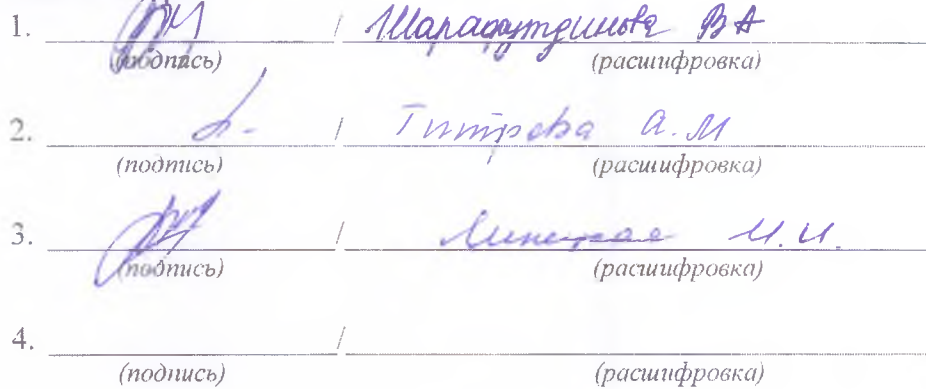 1. / Шарафутдинова ВА
(подпись) (расшифровка)
2. / Титрова А.М
(подпись) (расшифровка)
3. / И.И.
(подпись) (расшифровка)
4. /
(подпись) (расшифровка)